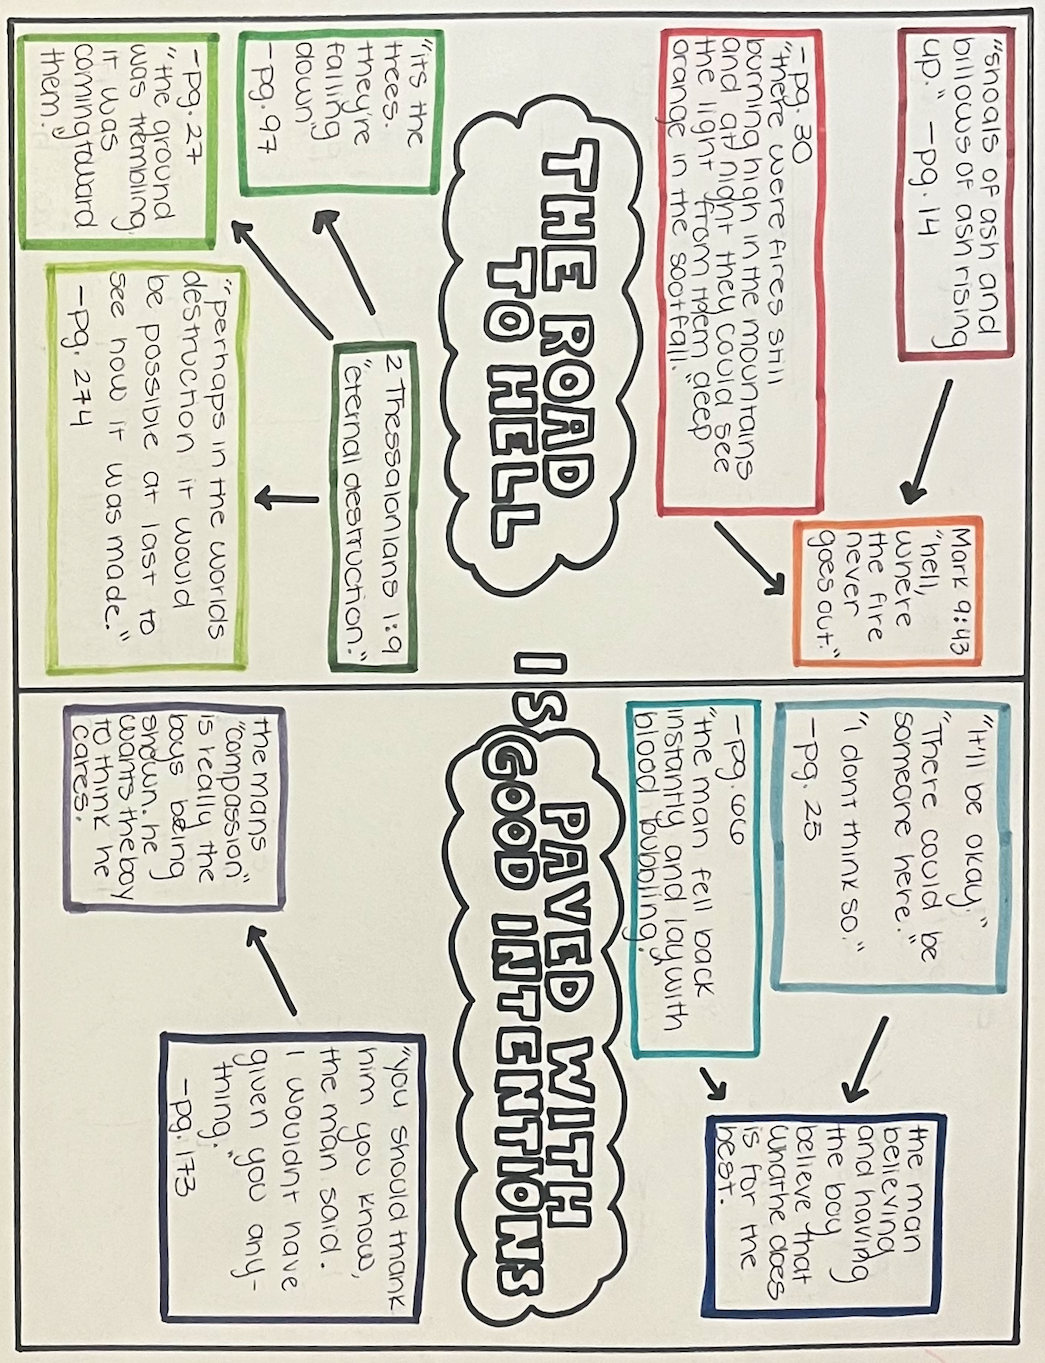 "shoals of ash and
billows of ash rising
up." -pg. 14
-pg. 30
"there were fires still
burning high in the mountains
and at night they could see
the light from them deep
orange in the sootfall."
Mark 9:43
"hell,
where
the fire
never
goes out."
"It'll be okay."
"There could be
someone here."
"I dont think so."
-pg. 25
-pg. 66
"the man fell back
instantly and lay with
blood bubbling."
the man
believing
and having
the boy
believe that
what he does
is for the
best.
THE ROAD
TO HELL
IS
PAVED WITH
GOOD INTENTIONS
"its the
trees.
they're
falling
down"
-pg. 97
2 Thessalonians 1:9
"eternal destruction."
-pg. 27
"the ground
was trembling.
it was
coming toward
them."
"perhaps in the worlds
destruction it would
be possible at last to
see how it was made."
-pg. 274
"you should thank
him you know,
the man said.
I wouldnt have
given you any-
thing."
-pg. 173
the mans
"compassion"
is really the
boys being
shown. he
wants the boy
to think he
cares.